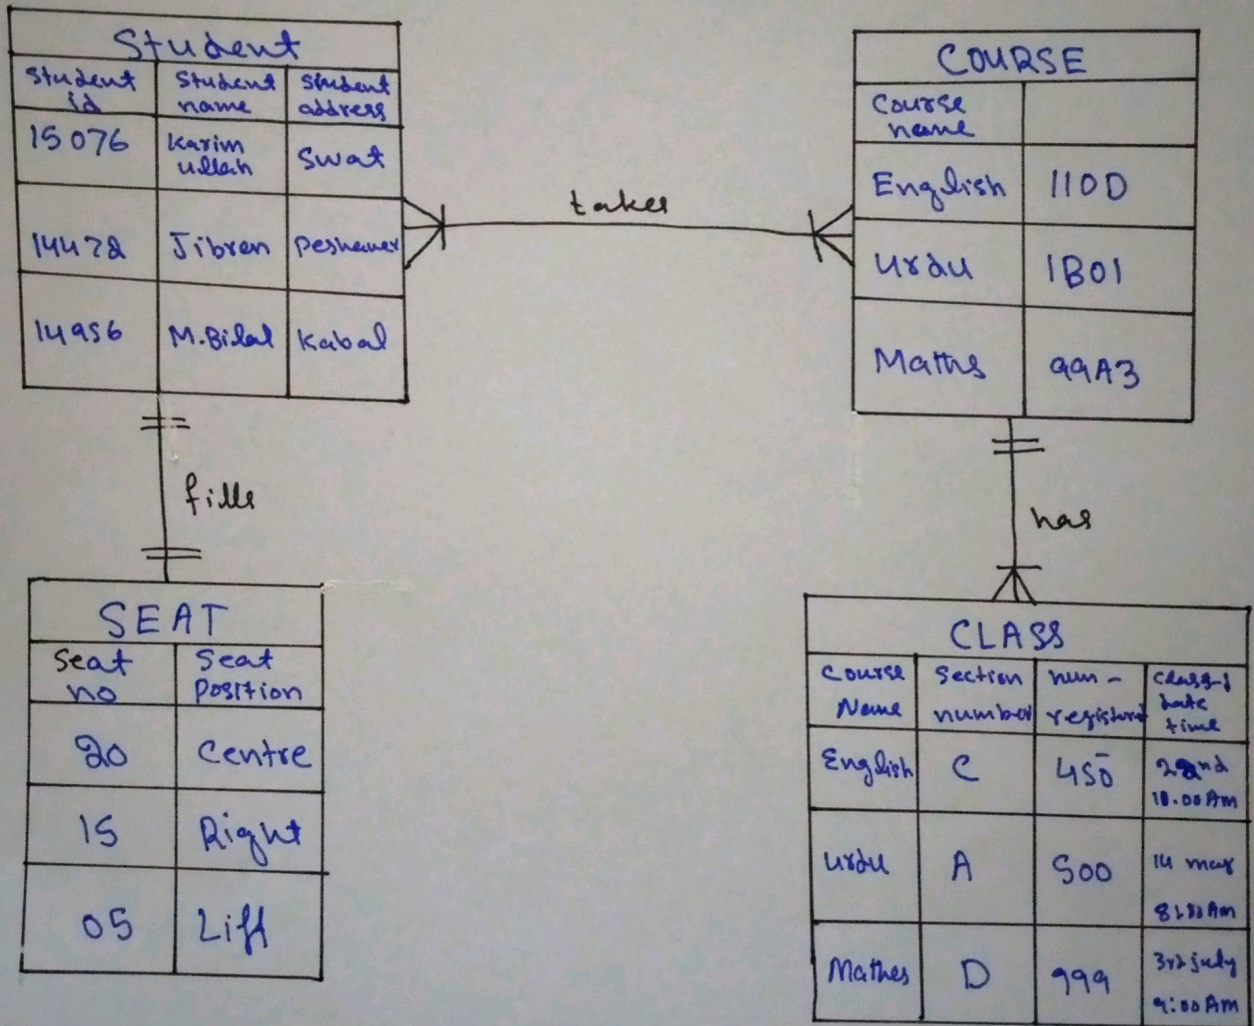 Student
Student id
Student name
Student address
15076
Karim ullah
Swat
14472
Jibren
Peshawer
14956
M.Bilal
Kabal
takes
COURSE
Course name
English
110D
Urdu
1B01
Maths
99A3
fills
has
SEAT
Seat no
Seat Position
20
Centre
15
Right
05
Liff
CLASS
Course Name
Section number
num-
Class
date
time
English
C
450
10.00 Am
Urdu
A
500
14 may
Am
Mathes
D
999
3rd july
9:00 Am